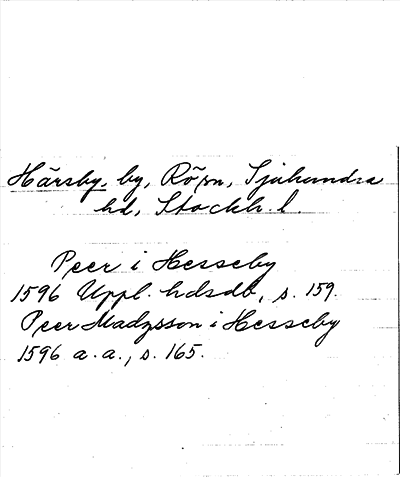 Härsby, by, Rö sn, Sjuhundra
hd, Stockh. l.
Peer i Hesseby
1596 Uppl. hdsdb, s. 159.
Peer Madzsson i Hesseby
1596 a. a., s. 165.